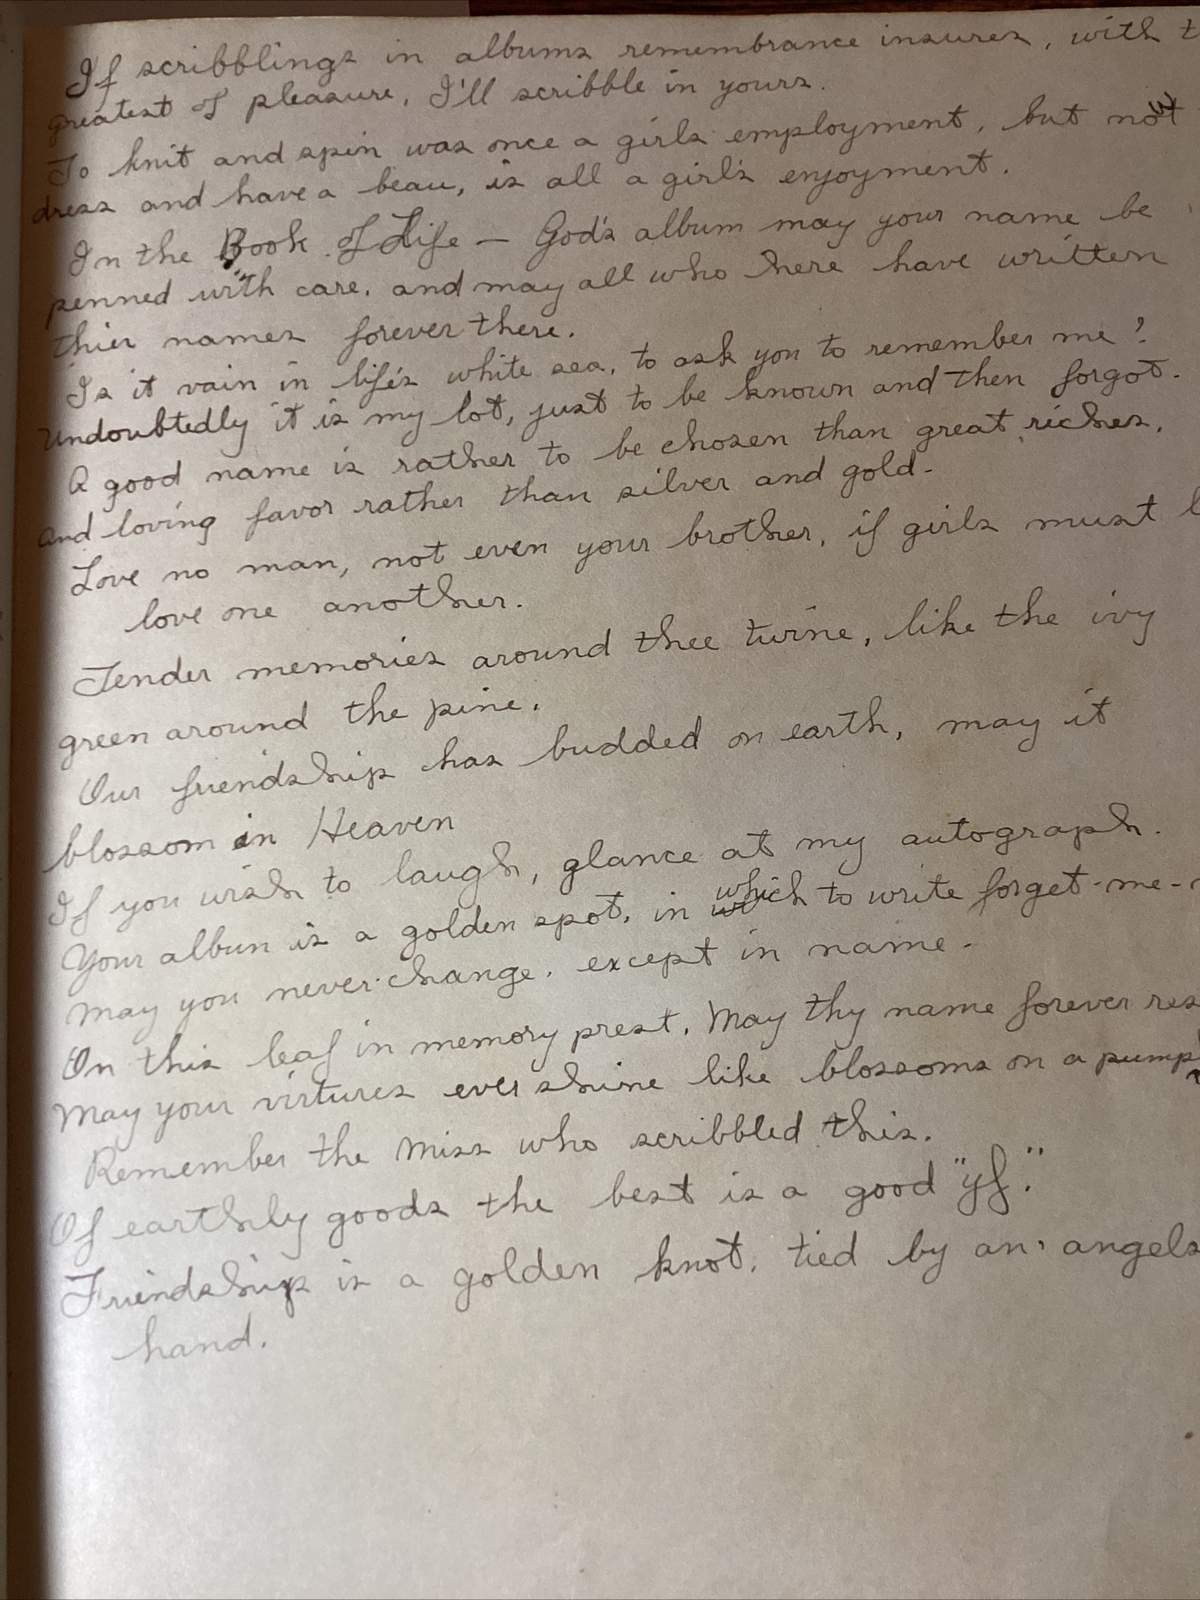 If scribblings in albums remembrance insures, with t
greatest of pleasure, I'll scribble in yours.
To knit and spin was once a girls employment, but now
dress and have a beau, is all a girl's enjoyment.
In the Book of Life — God's album may your name be
penned with care. and may all who here have written
thier names forever there.
Is it vain in life's white sea, to ask you to remember me?
Undoubtedly it is my lot, just to be known and then forgot.
A good name is rather to be chosen than great riches,
and loving favor rather than silver and gold.
Love no man, not even your brother, if girls must l
love one another.
Tender memories around thee twine, like the ivy
green around the pine.
Our friendship has budded on earth, may it
blossom in Heaven
If you wish to laugh, glance at my autograph.
Your album is a golden spot, in which to write forget-me-n
May you never change. except in name.
On this leaf in memory prest, May thy name forever res
May your virtures ever shine like blossoms on a pump
Remember the Miss who scribbled this.
Of earthly goods the best is a good "yf."
Friendship is a golden knot, tied by an angels
hand.